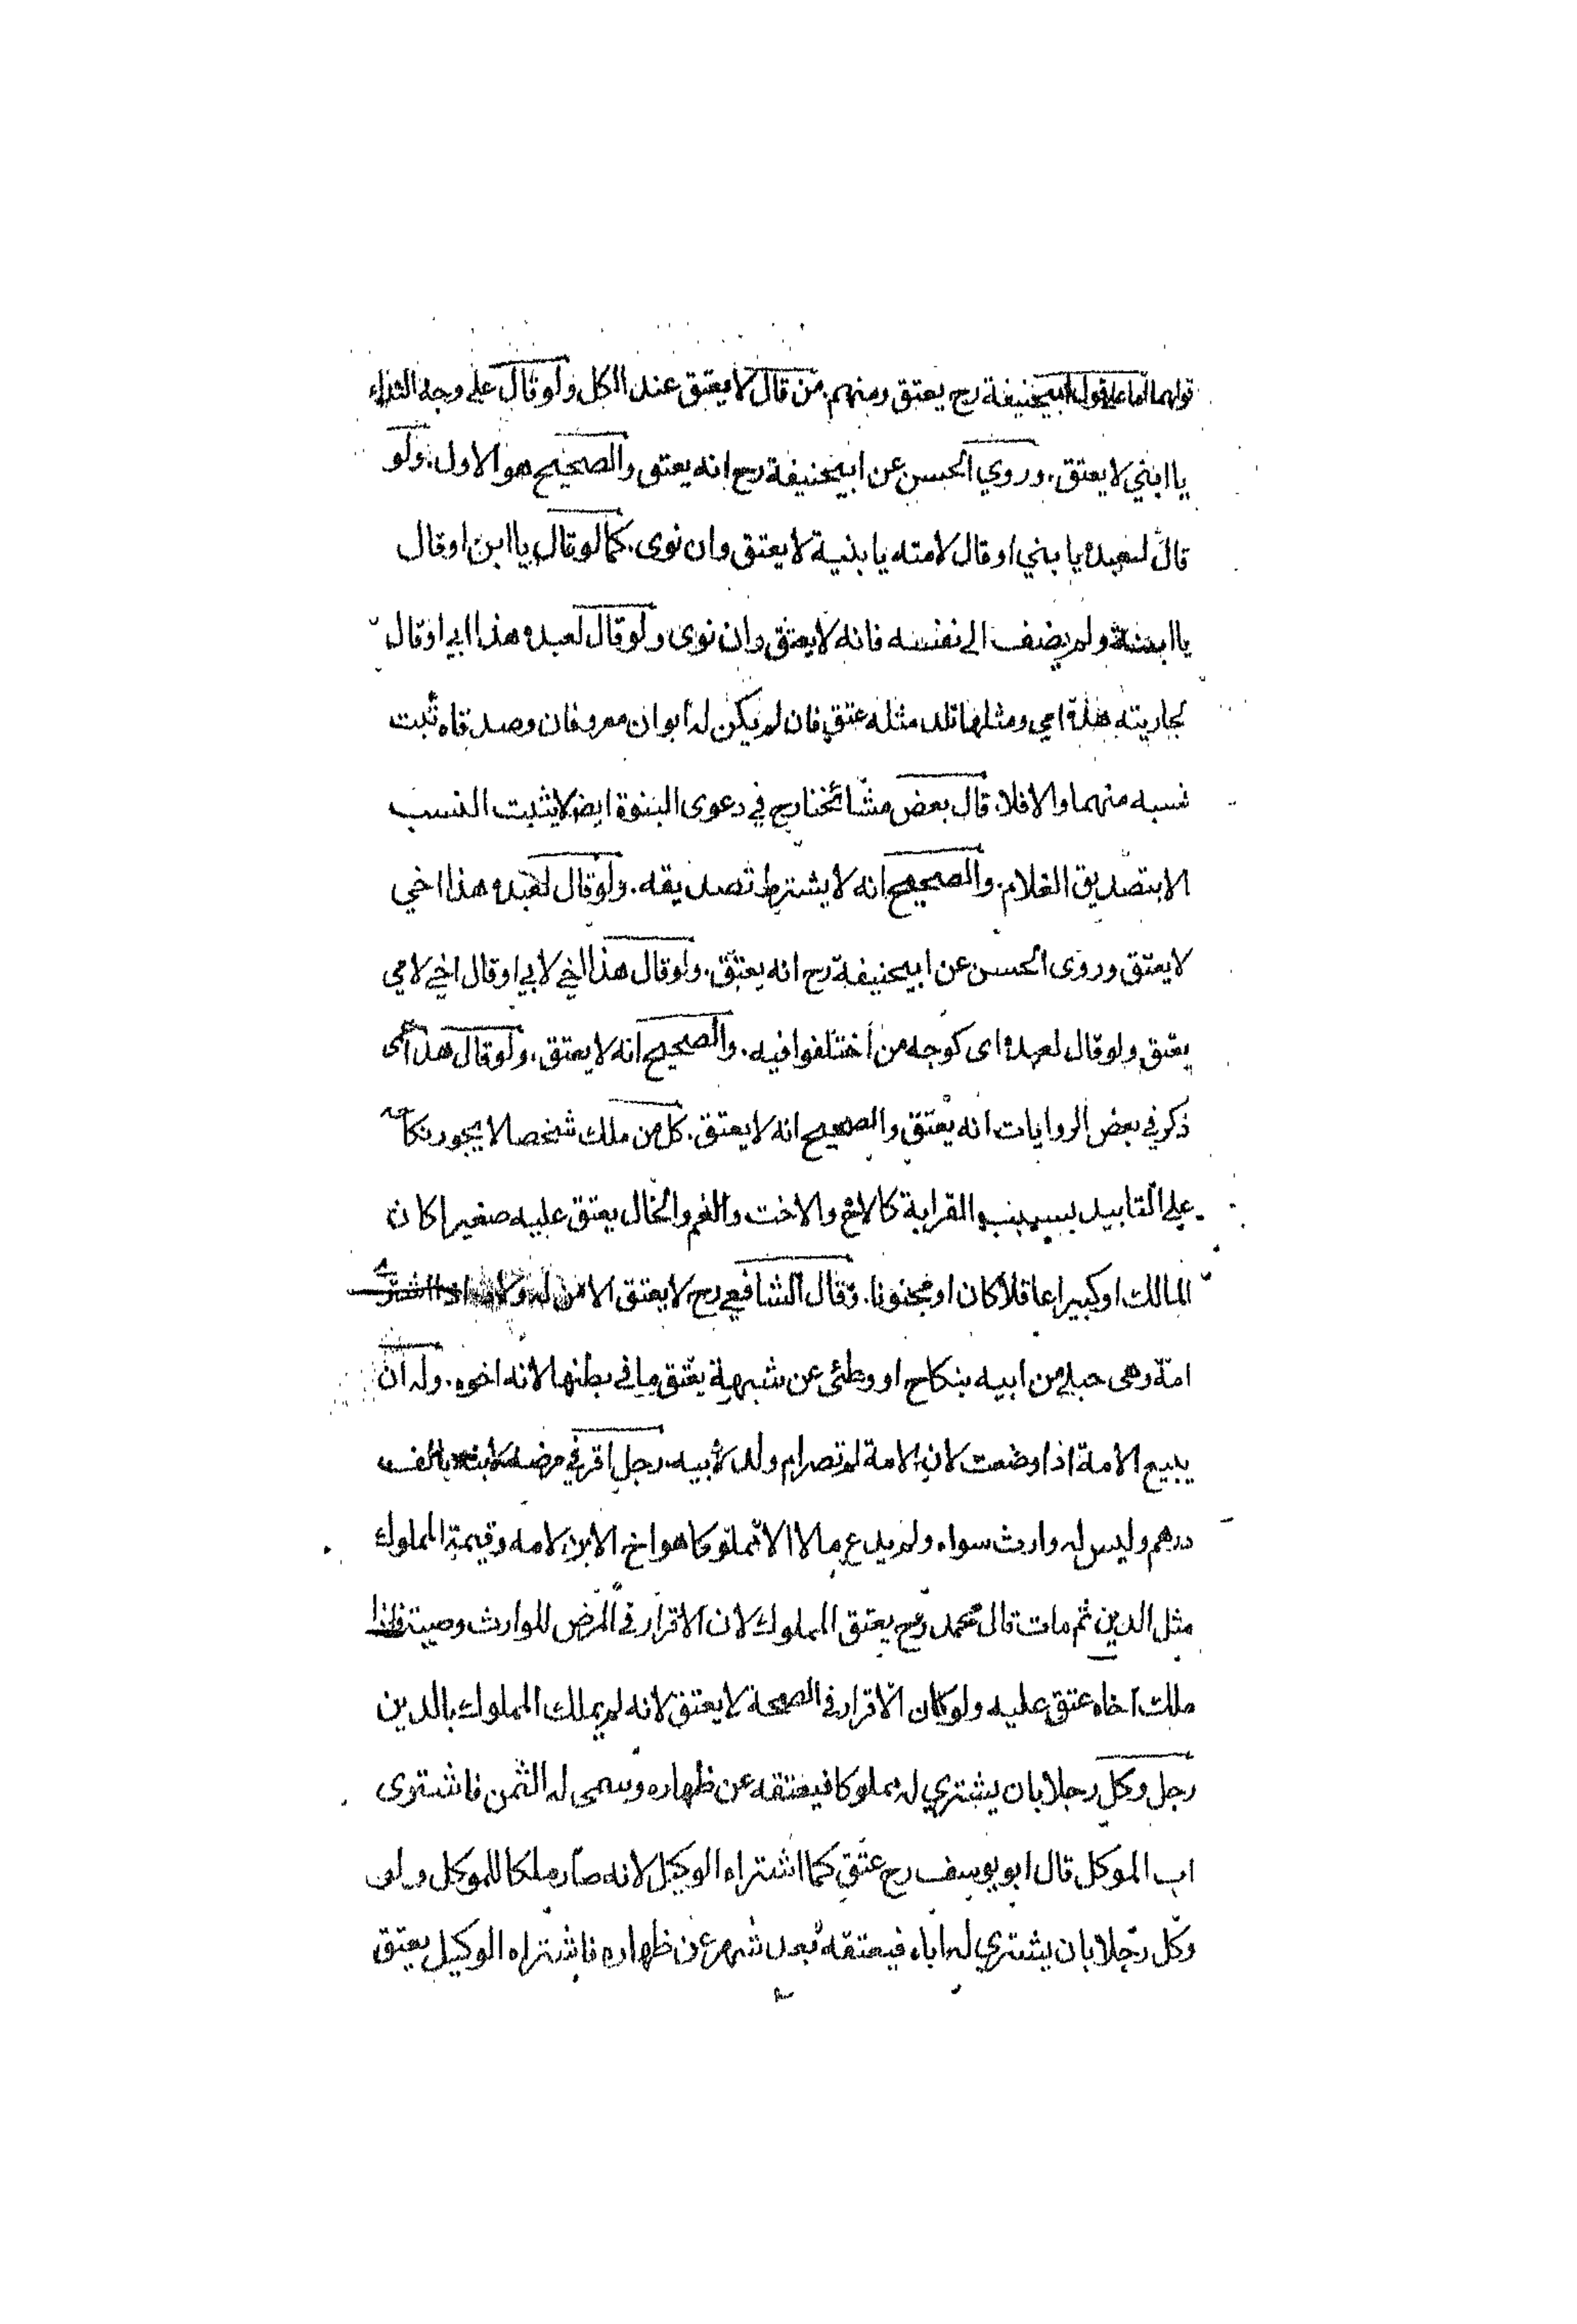 قولهما اما على قول ابيحنيفة رح يعتق ومنهم من قال لا يعتق عند الكل ولو قال على وجه النداء
يا ابني لا يعتق. وروي الحسن عن ابيحنيفة رح انه يعتق والصحيح هو الاول. ولو
قال لعبده يا بني او قال لامته يا بنية لا يعتق وان نوى. كما لو قال يا ابن او قال
يا ابنة ولم يضف الى نفسه فانه لا يعتق وان نوى ولو قال لعبده هذا ابي او قال
لجاريته هذه امي ومثلها تلد مثله عتق فان لم يكن له ابوان معروفان وصدقاه ثبت
نسبه منهما والا فلا. قال بعض مشائخنا رح في دعوى البنوة ايض لا يثبت النسب
الا بتصديق الغلام. والصحيح انه لا يشترط تصديقه. ولو قال لعبده هذا اخي
لا يعتق وروى الحسن عن ابيحنيفة رح انه يعتق. ولو قال هذا اخي لابي او قال اخي لامي
يعتق ولو قال لعبده اى كوچه من اختلفوا فيه. والصحيح انه لا يعتق. ولو قال هذا عمى
ذكر في بعض الروايات انه يعتق والصحيح انه لا يعتق. كل من ملك شخصا لا يجوز نكاحه
على التابيد بسبب القرابة كالاخ والاخت والعم والخال يعتق عليه صغيرا كان
المالك او كبيرا عاقلا كان او مجنونا. وقال الشافعي رح لا يعتق الا من له ولاد
امة وهى حبلى من ابيه بنكاح او وطئى عن شبهة يعتق ما في بطنها لانه اخوه. وله ان
يبيع الامة اذا وضعت لان الامة لم تصر ام ولد لأبيه. رجل اقر في مرضه لابنه بالف
درهم وليس له وارث سواه ولم يدع مالا الا مملوكا هو اخ الابن لامه وقيمة المملوك
مثل الدين ثم مات قال محمد رح يعتق المملوك لان الاقرار في المرض للوارث وصية فاذا
ملك اخاه عتق عليه ولو كان الاقرار في الصحة لا يعتق لانه لم يملك المملوك بالدين
رجل وكل رجلا بان يشتري له مملوكا فيعتقه عن ظهاره وسمى له الثمن فاشترى
اب الموكل قال ابو يوسف رح عتق كما اشتراه الوكيل لانه صار ملكا للموكل ولو
وكل رجلا بان يشتري له اباه فيعتقه بعد شهر عن ظهاره فاشتراه الوكيل يعتق